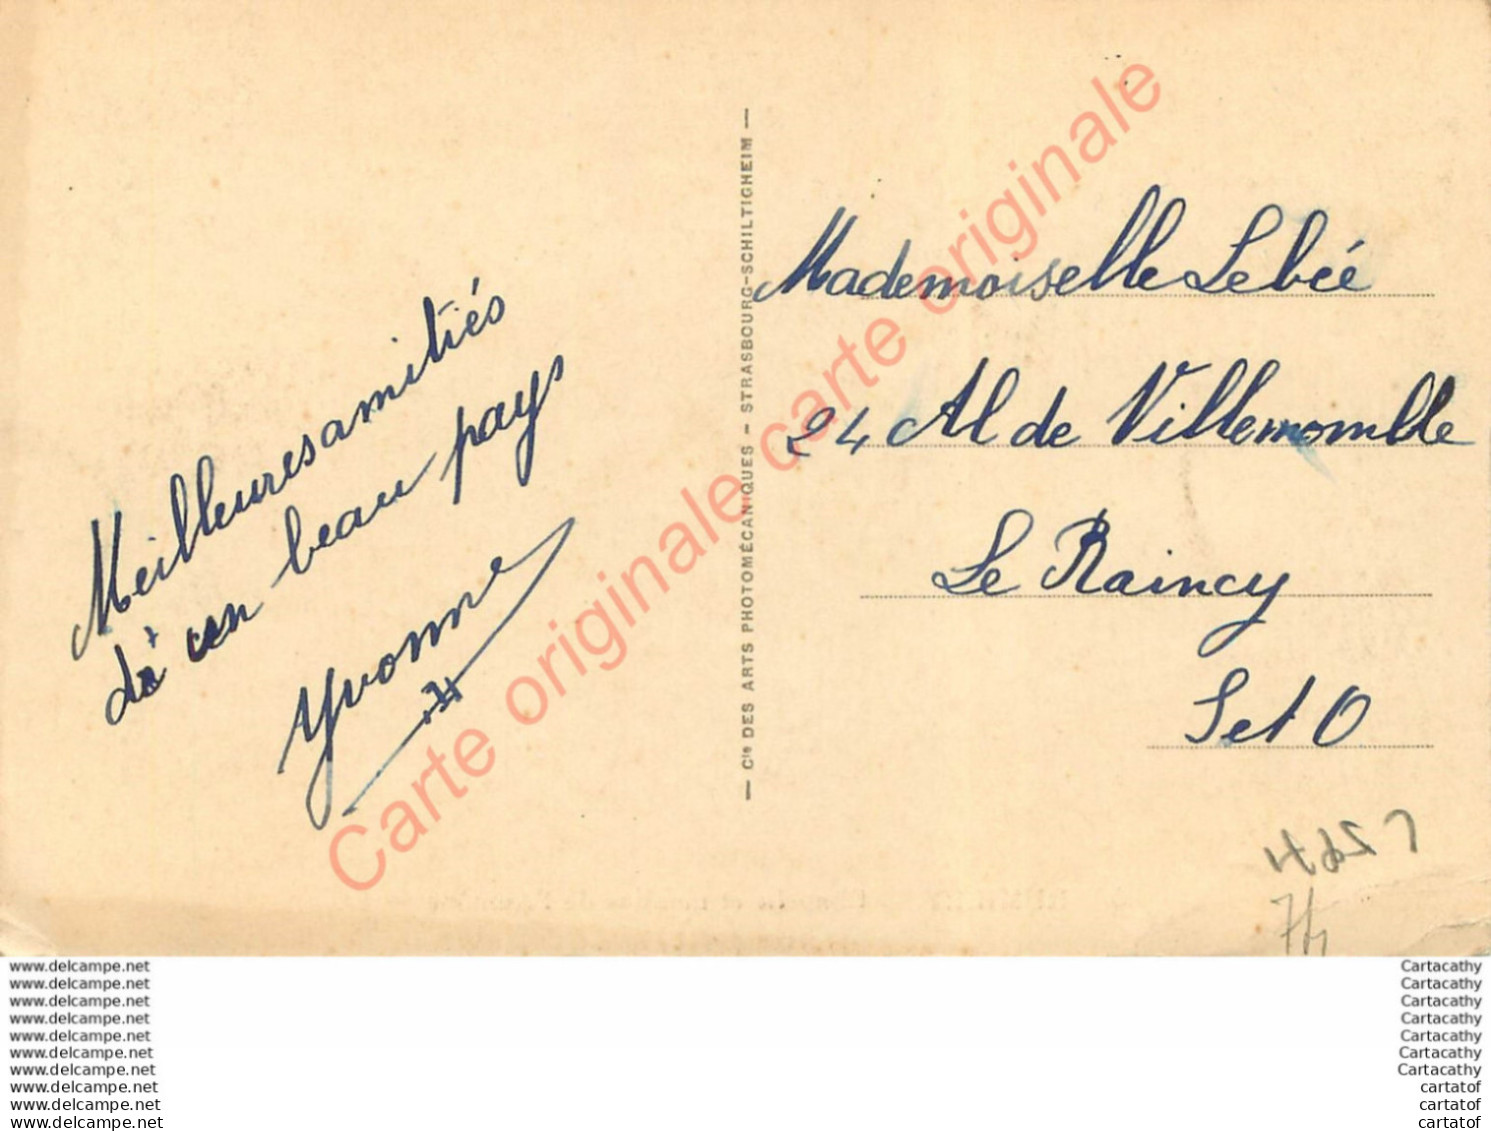 Meilleures amitiés
d'un beau pays
Yvonne
— Cie DES ARTS PHOTOMÉCANIQUES — STRASBOURG-SCHILTIGHEIM —
Mademoiselle Lebée
24 Al de Villemomble
Le Raincy
S et O
Carte originale carte originale Carte originale
www.delcampe.net
www.delcampe.net
www.delcampe.net
www.delcampe.net
www.delcampe.net
www.delcampe.net
www.delcampe.net
www.delcampe.net
www.delcampe.net
www.delcampe.net
Cartacathy
Cartacathy
Cartacathy
Cartacathy
Cartacathy
Cartacathy
Cartacathy
cartatof
cartatof
cartatof